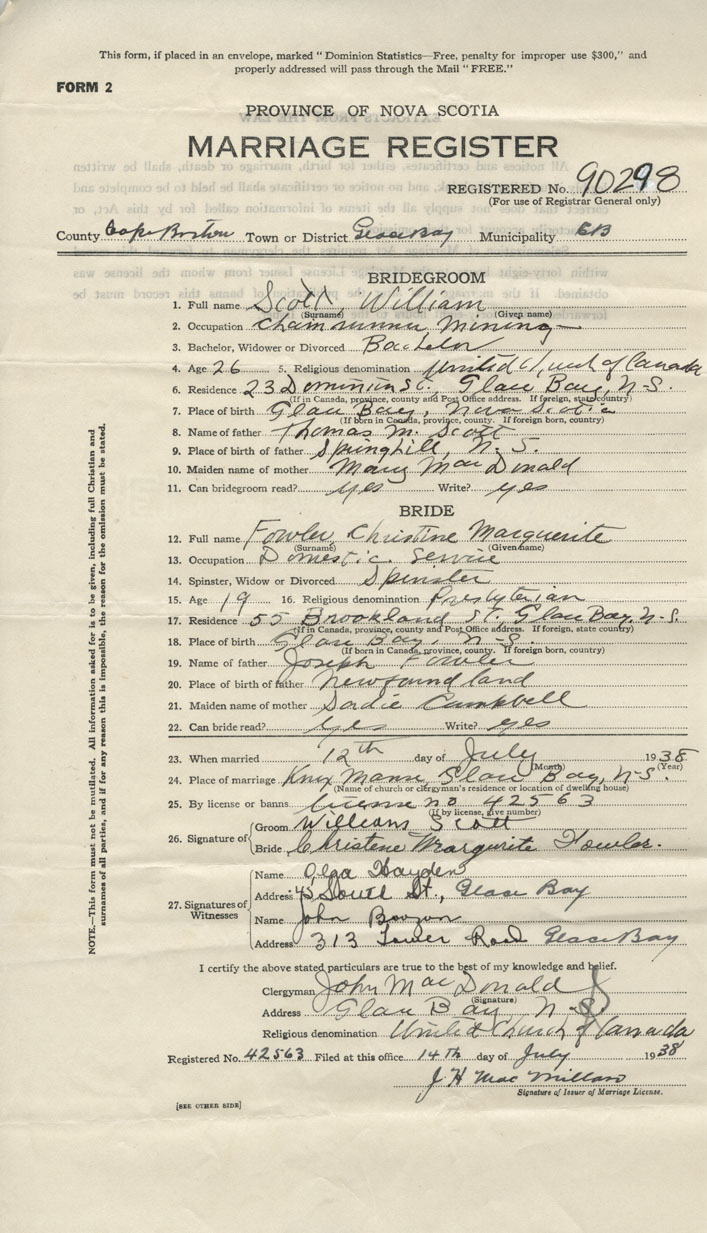 This form, if placed in an envelope, marked "Dominion Statistics—Free, penalty for improper use $300," and
properly addressed will pass through the Mail "FREE."
FORM 2
PROVINCE OF NOVA SCOTIA
MARRIAGE REGISTER
REGISTERED No. 90298
(For use of Registrar General only)
County Cape Breton Town or District Glace Bay Municipality CB
BRIDEGROOM
1. Full name Scott, William
(Surname) (Given name)
2. Occupation Mining
3. Bachelor, Widower or Divorced Bachelor
4. Age 26 5. Religious denomination United Church of Canada
6. Residence 23 Dominion St., Glace Bay, N-S.
(If in Canada, province, county and Post Office address. If foreign, state country)
7. Place of birth Glace Bay, Nova Scotia
(If born in Canada, province, county. If foreign born, country)
8. Name of father Thomas M. Scott
9. Place of father Springhill, N. S.
10. Maiden name of mother Mary MacDonald
11. Can bridegroom read? yes Write? yes
BRIDE
12. Full name Fowler, Christine Marguerite
(Surname) (Given name)
13. Occupation Domestic Service
14. Spinster, Widow or Divorced Spinster
15. Age 19 16. Religious denomination Presbyterian
17. Residence 55 Brookland St., Glace Bay, N-S.
(If in Canada, province, county and Post Office address. If foreign, state country)
18. Place of birth Glace Bay, N-S.
(If born in Canada, province, county. If foreign born, country)
19. Name of father Joseph Fowler
20. Place of birth of father Newfoundland
21. Maiden name of mother Sadie Campbell
22. Can bride read? Yes Write? yes
23. When married 12th day of July 1938
(Month) (Year)
24. Place of marriage Knox Manse, Glace Bay, N-S.
(Name of church or clergyman's residence or location of dwelling house)
25. By license or banns license no 42563
(If by license, give number)
26. Signature of Groom William Scott
Bride Christene Margurite Fowler.
27. Signatures of Witnesses
Name Olga Hayden
Address 45 South St., Glace Bay
Name John
Address 313 Tower Road Glace Bay
I certify the above stated particulars are true to the best of my knowledge and belief.
Clergyman John MacDonald
(Signature)
Address Glace Bay N-S
Religious denomination United Church of Canada
Registered No. 42563 Filed at this office 14th day of July 1938
J. H. MacMillan
Signature of Issuer of Marriage License.
[SEE OTHER SIDE]
NOTE.—This form must not be mutilated. All information asked for is to be given, including full Christian and
surnames of all parties, and if for any reason this is impossible, the reason for the omission must be stated.